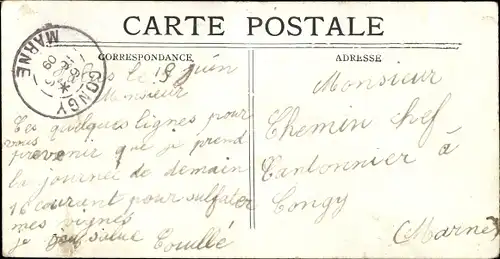 CARTE POSTALE
CORRESPONDANCE
ADRESSE
CONGY
MARNE
le 15 juin
Monsieur
Ces quelques lignes pour
vous
prevenir que je prend
la journée de demain
16 courant pour sulfater
mes vignes
je vous salue Couillé
Monsieur
Chemin chef
Cantonnier à
Congy
(Marne)